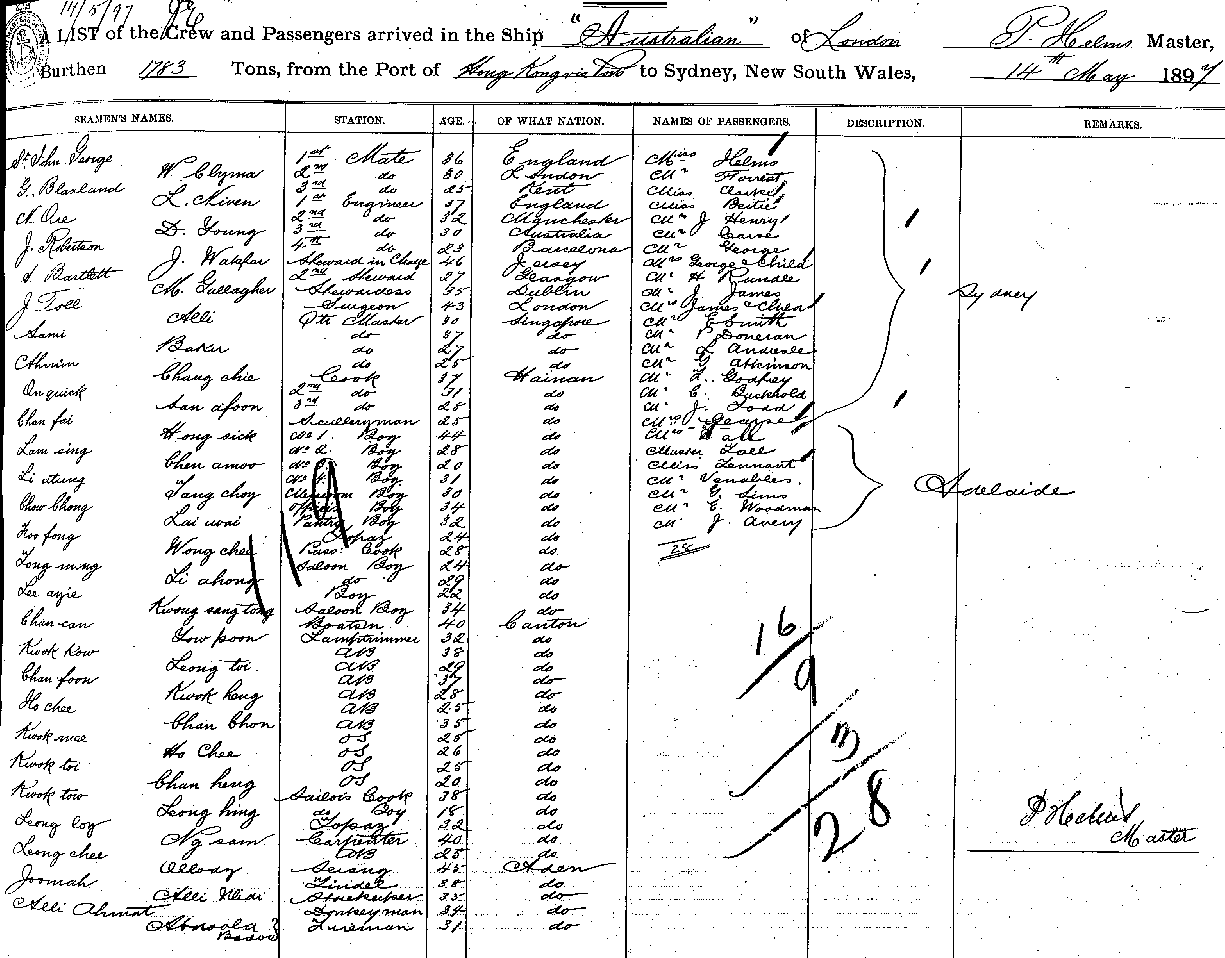 14/5/97
A LIST of the Crew and Passengers arrived in the Ship "Australian" of London P. Helms Master,
Burthen 1783 Tons, from the Port of Hong Kong via to Sydney, New South Wales, 14th May 1897
SEAMEN'S NAMES. STATION. AGE. OF WHAT NATION. NAMES OF PASSENGERS. DESCRIPTION. REMARKS.
St John George 1st Mate 36 England Miss Helms
W. Clyma 2nd do 30 London Mr Forrest
G. Blaxland 3rd do 25 Kent Miss
L. Niven 1st Engineer 37 England Miss
2nd do 32 Manchester Mr J Henry
D. Young 3rd do 30 Australia Mr
J. Robertson 4th do 23 Barcelona Mr George
J. Steward in Charge 46 Jersey Mrs George & Child
Bartlett 2nd Steward 27 Glasgow Mr H Rundle
M. Gallagher Stewardess 35 Dublin Mr J. James
J. Toll Surgeon 43 London Mrs James
Alli Qtr Master 30 Singapore Mr Smith
Sami do 37 do Mr P Donovan
Baker do 27 do Mr L
do 25 do Mr G Atkinson
Chang chie Cook 37 Hainan Mr L. Godfrey
On quick 2nd do 31 do Mr C. Buckhold
San afoon 3rd do 28 do Mr J. Todd
Chan fai Sculleryman 25 do Mrs Pearse
Hong sick No 1. Boy 44 do Mrs
Lam sing No 2. Boy 28 do Master
Chen amoo No Boy 20 do Miss Tennant
Li atung No 4. Boy 31 do Mr Venables.
Tang choy Boy 30 do Mr G. Sims
Chow Chong Boy 34 do Mr E. Woodman
Lai wai Pantry Boy 32 do Mr J. Avery
Hoo fong Topaz 24 do
28
Wong chee Pass. Cook 28 do
Tong ming Saloon Boy 24 do
Li ahong do 29 do
Lee ayie Boy 22 do
Kwong sang tong Saloon Boy 34 do
Chan can Boatsn 40 Canton
Low poon Lamptrimmer 32 do
Kwok Kow AB 38 do
Leong toi. AB 29 do
Chan foon AB 37 do
Kwok heng AB 28 do
Ho chee AB 25 do
Chan Chon AB 35 do
Kwok mee OS 25 do
Ho Chee OS 26 do
Kwok toi OS 25 do
Chan heng OS 20 do
Kwok tow Sailors Cook 38 do
Leong hing do Boy 18 do
Leong loy Topaz 32 do
Ng sam Carpenter 40 do
Leong chee AB 25 do
Serang 45 Aden
Joomah Tindel 38 do
Alli Storekeeper 35 do
Alli Ahmat Donkeyman 34 do
Fireman 31 do
Sydney
Adelaide
19
16
9
3
28
P Helms
Master